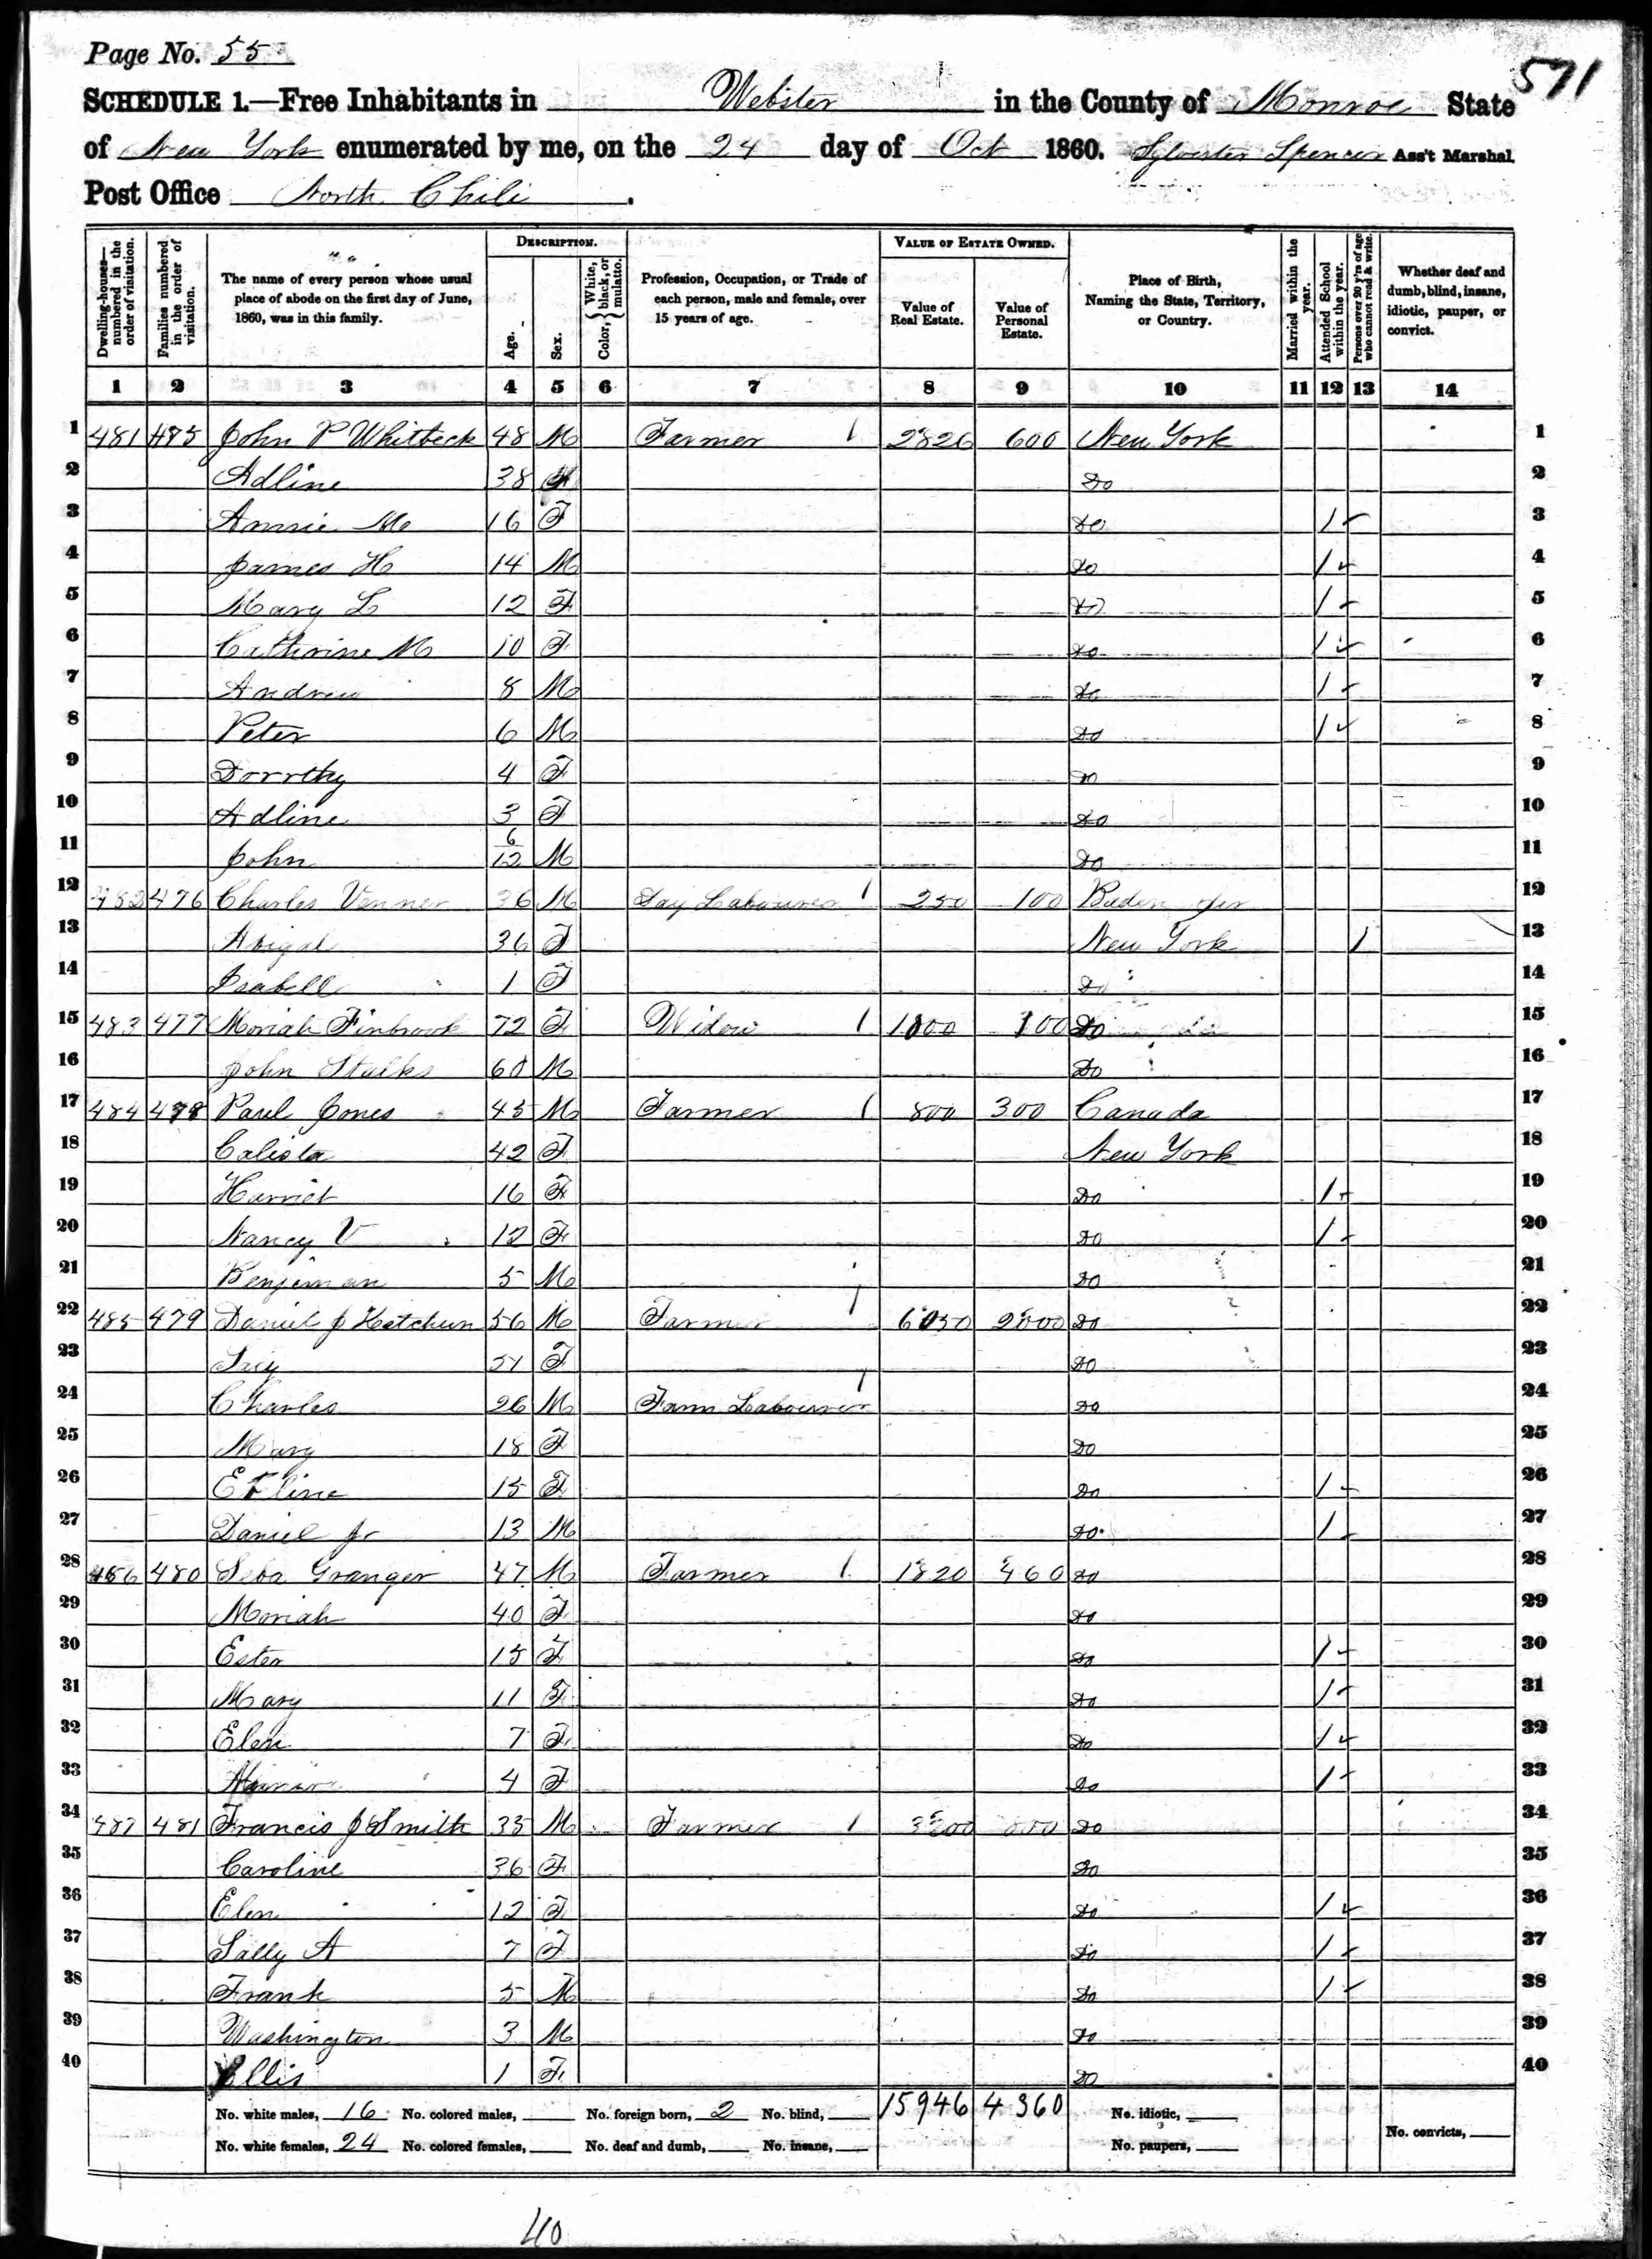 Page No. 55
571
SCHEDULE 1.—Free Inhabitants in Webster in the County of Monroe State
of New York enumerated by me, on the 24 day of Oct 1860. Sylvester Spencer Ass't Marshal
Post Office North Chili.
Dwelling-houses—numbered in the order of visitation.
Families numbered in the order of visitation.
The name of every person whose usual place of abode on the first day of June, 1860, was in this family.
DESCRIPTION.
Age.
Sex.
Color, { White, black, or mulatto.
Profession, Occupation, or Trade of each person, male and female, over 15 years of age.
VALUE OF ESTATE OWNED.
Value of Real Estate.
Value of Personal Estate.
Place of Birth, Naming the State, Territory, or Country.
Married within the year.
Attended School within the year.
Persons over 20 y'rs of age who cannot read & write.
Whether deaf and dumb, blind, insane, idiotic, pauper, or convict.
1 2 3 4 5 6 7 8 9 10 11 12 13 14
1 481 485 John P Whitbeck 48 M Farmer 1 2826 600 New York 1
2 Adline 38 Do 2
3 Annie M 16 F Do 1 3
4 James H 14 M Do 1 4
5 Mary L 12 F Do 1 5
6 Cathrine M 10 F Do 1 6
7 Andrew 8 M Do 1 7
8 Peter 6 M Do 1 8
9 Dorrthy 4 F Do 9
10 Adline 3 F Do 10
11 John 6/12 M Do 11
12 482 476 Charles Venner 36 M Day Labourer 1 250 100 Baden 12
13 Abigal 36 F New York 1 13
14 Isabell 1 F Do 14
15 483 477 Moriah 72 F Widow 1 1800 100 Do 15
16 John Stalks 60 M Do 16
17 484 478 Paul Jones 45 M Farmer 1 800 300 Canada 17
18 Calista 42 F New York 18
19 Harriet 16 F Do 1 19
20 Nancy V 12 F Do 1 20
21 Benjiman 5 M Do 21
22 485 479 Daniel J Ketchum 56 M Farmer 1 6050 2000 Do 22
23 51 F Do 23
24 Charles 26 M Farm Labourer 1 Do 24
25 Mary 18 F Do 25
26 15 F Do 1 26
27 Daniel Jr 13 M Do 1 27
28 486 480 Seba Granger 47 M Farmer 1 1820 460 Do 28
29 Moriah 40 F Do 29
30 Ester 15 F Do 1 30
31 Mary 11 F Do 1 31
32 Elen 7 F Do 1 32
33 4 F Do 1 33
34 487 481 Francis J Smith 35 M Farmer 1 800 Do 34
35 Caroline 36 F Do 35
36 Elen 12 F Do 1 36
37 Sally A 7 F Do 1 37
38 Frank 5 M Do 1 38
39 Washington 3 M Do 39
40 Ellis 1 F Do 40
No. white males, 16 No. colored males, No. foreign born, 2 No. blind, 15946 4360 No. idiotic,
No. white females, 24 No. colored females, No. deaf and dumb, No. insane, No. paupers, No. convicts,
40